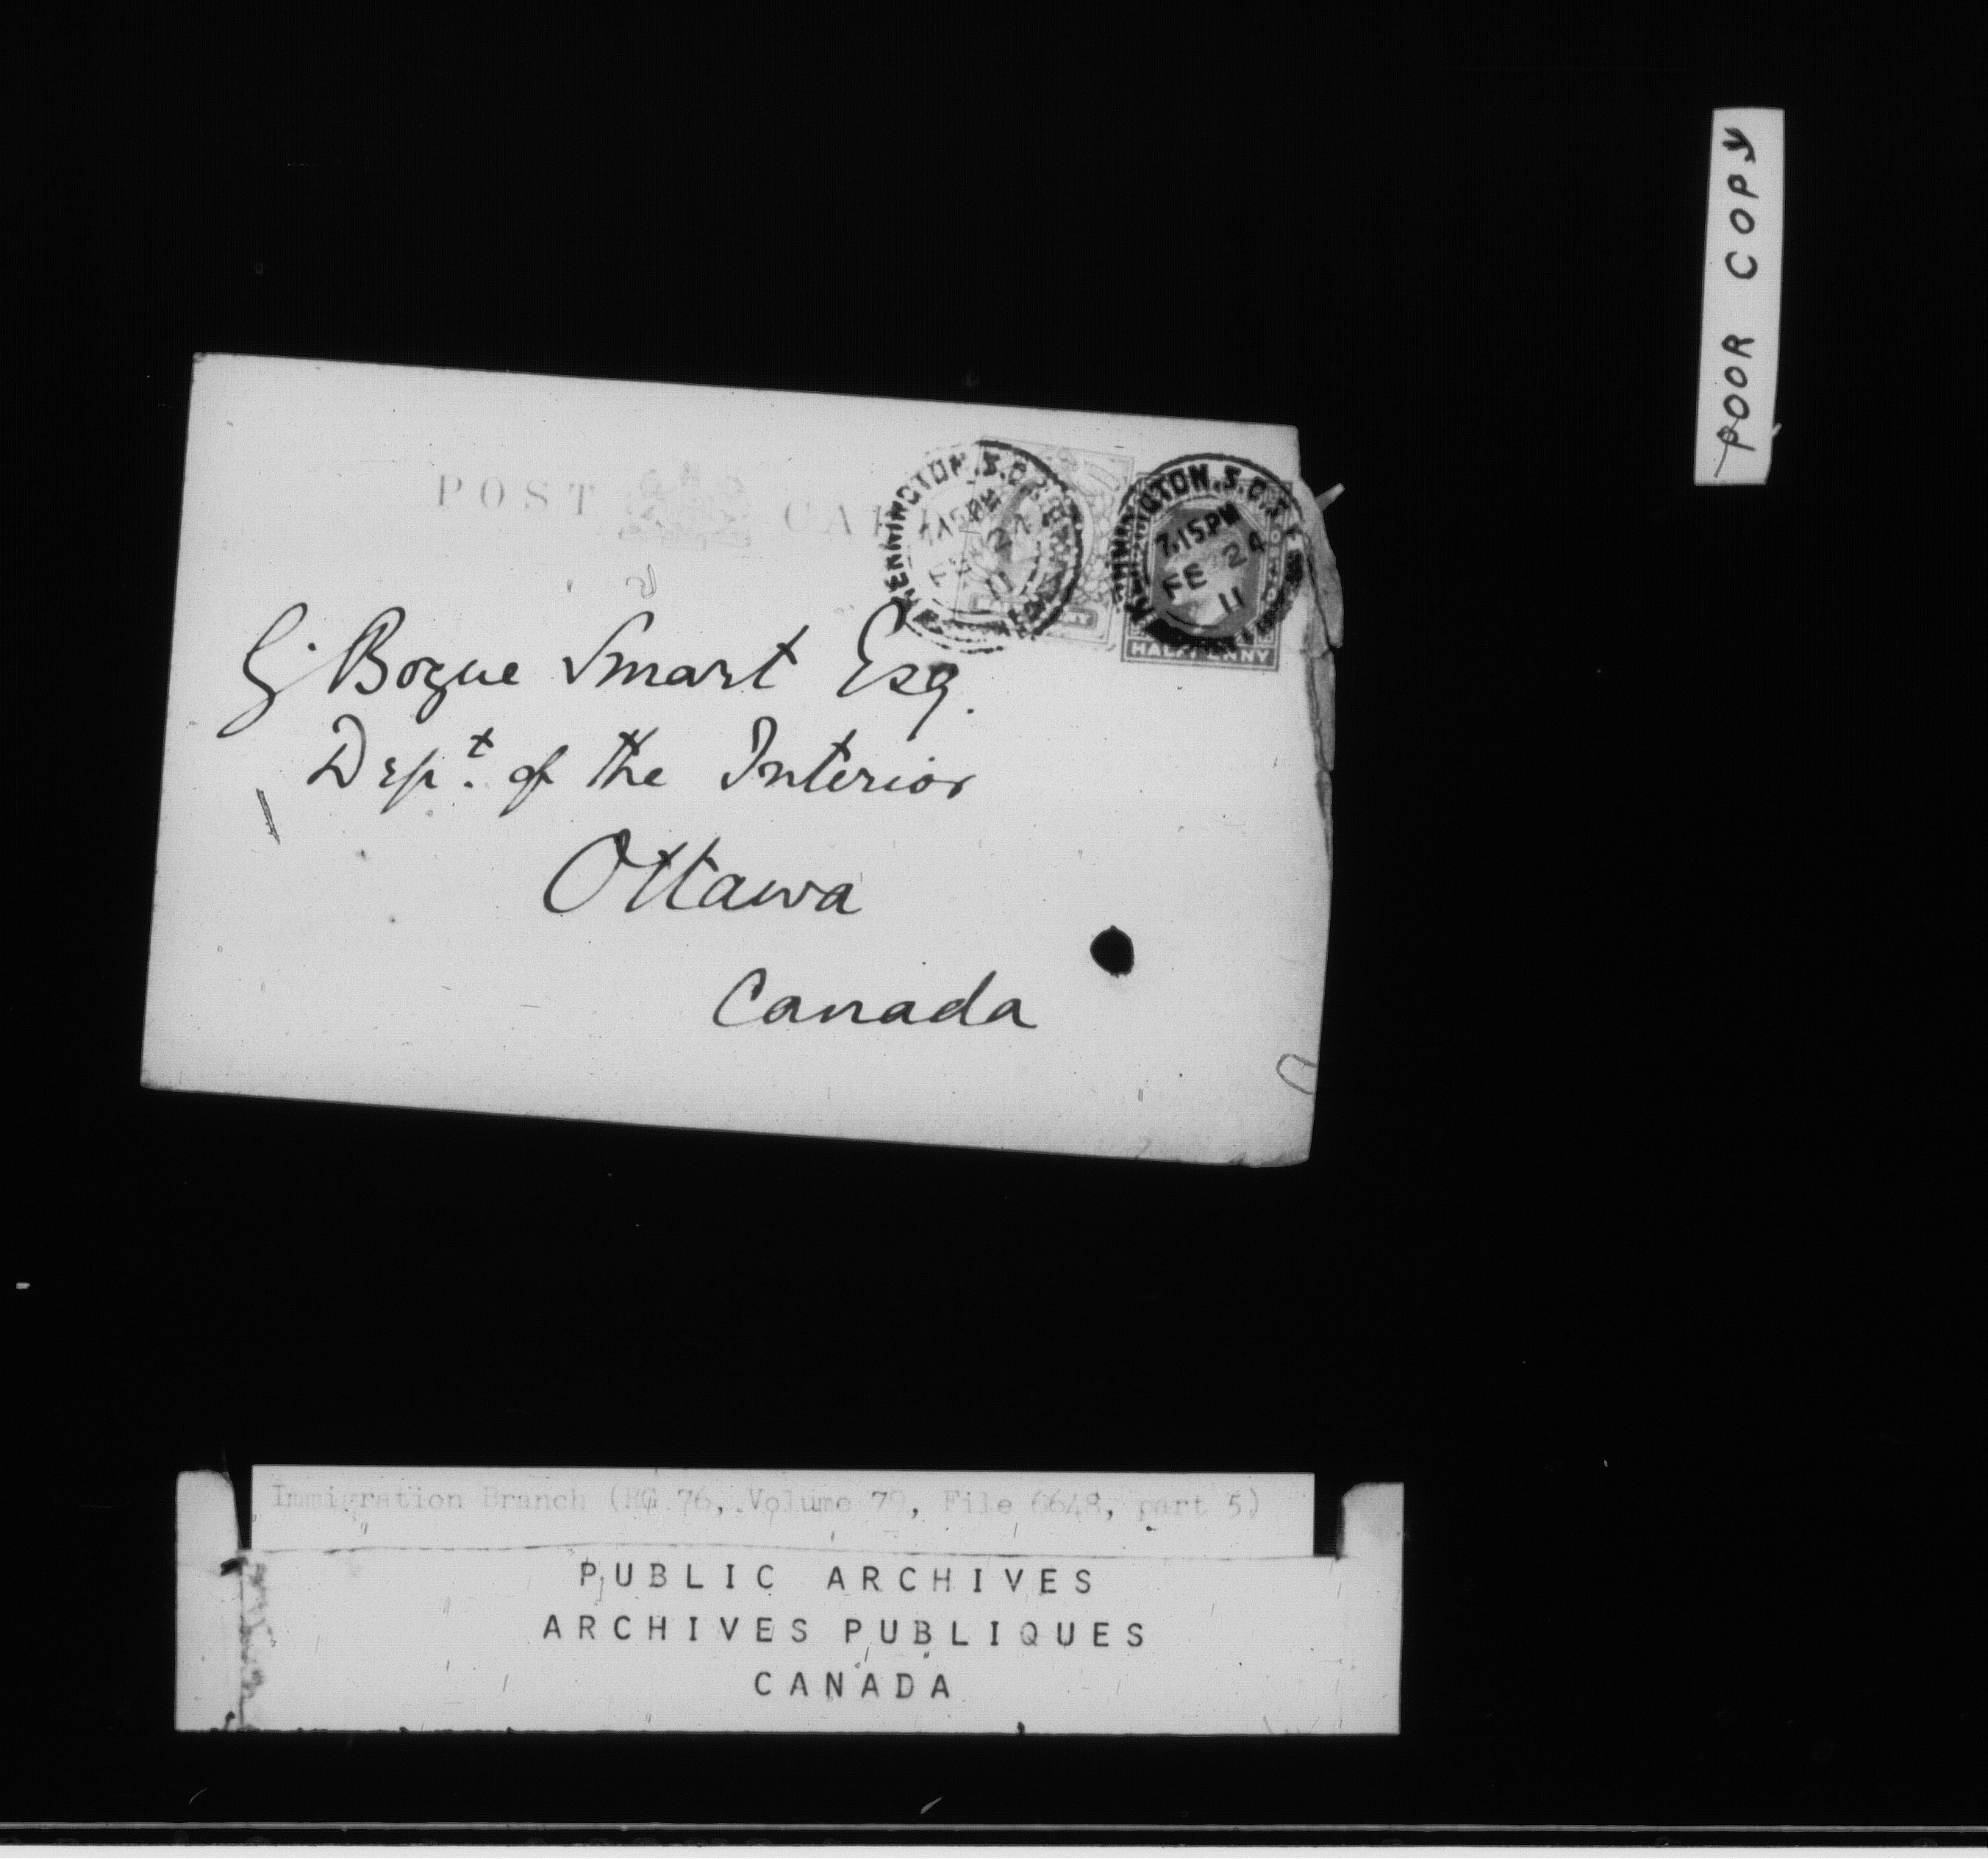 POOR COPY
POST CARD
KENNINGTON. S.O.
7.15 PM
FE 24
11
KENNINGTON. S.O.
7.15 PM
FE 24
11
HALFPENNY
HALFPENNY
G. Bogue Smart Esq.
Dept. of the Interior
Ottawa
Canada
Immigration Branch (RG 76, Volume 79, File 6648, part 5)
PUBLIC ARCHIVES
ARCHIVES PUBLIQUES
CANADA